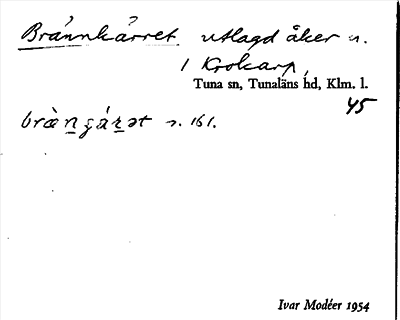 Brännkärret utlagd åker n.
1 Krokarp,
Tuna sn, Tunaläns hd, Klm. l.
45
s. 161.
Ivar Modéer 1954